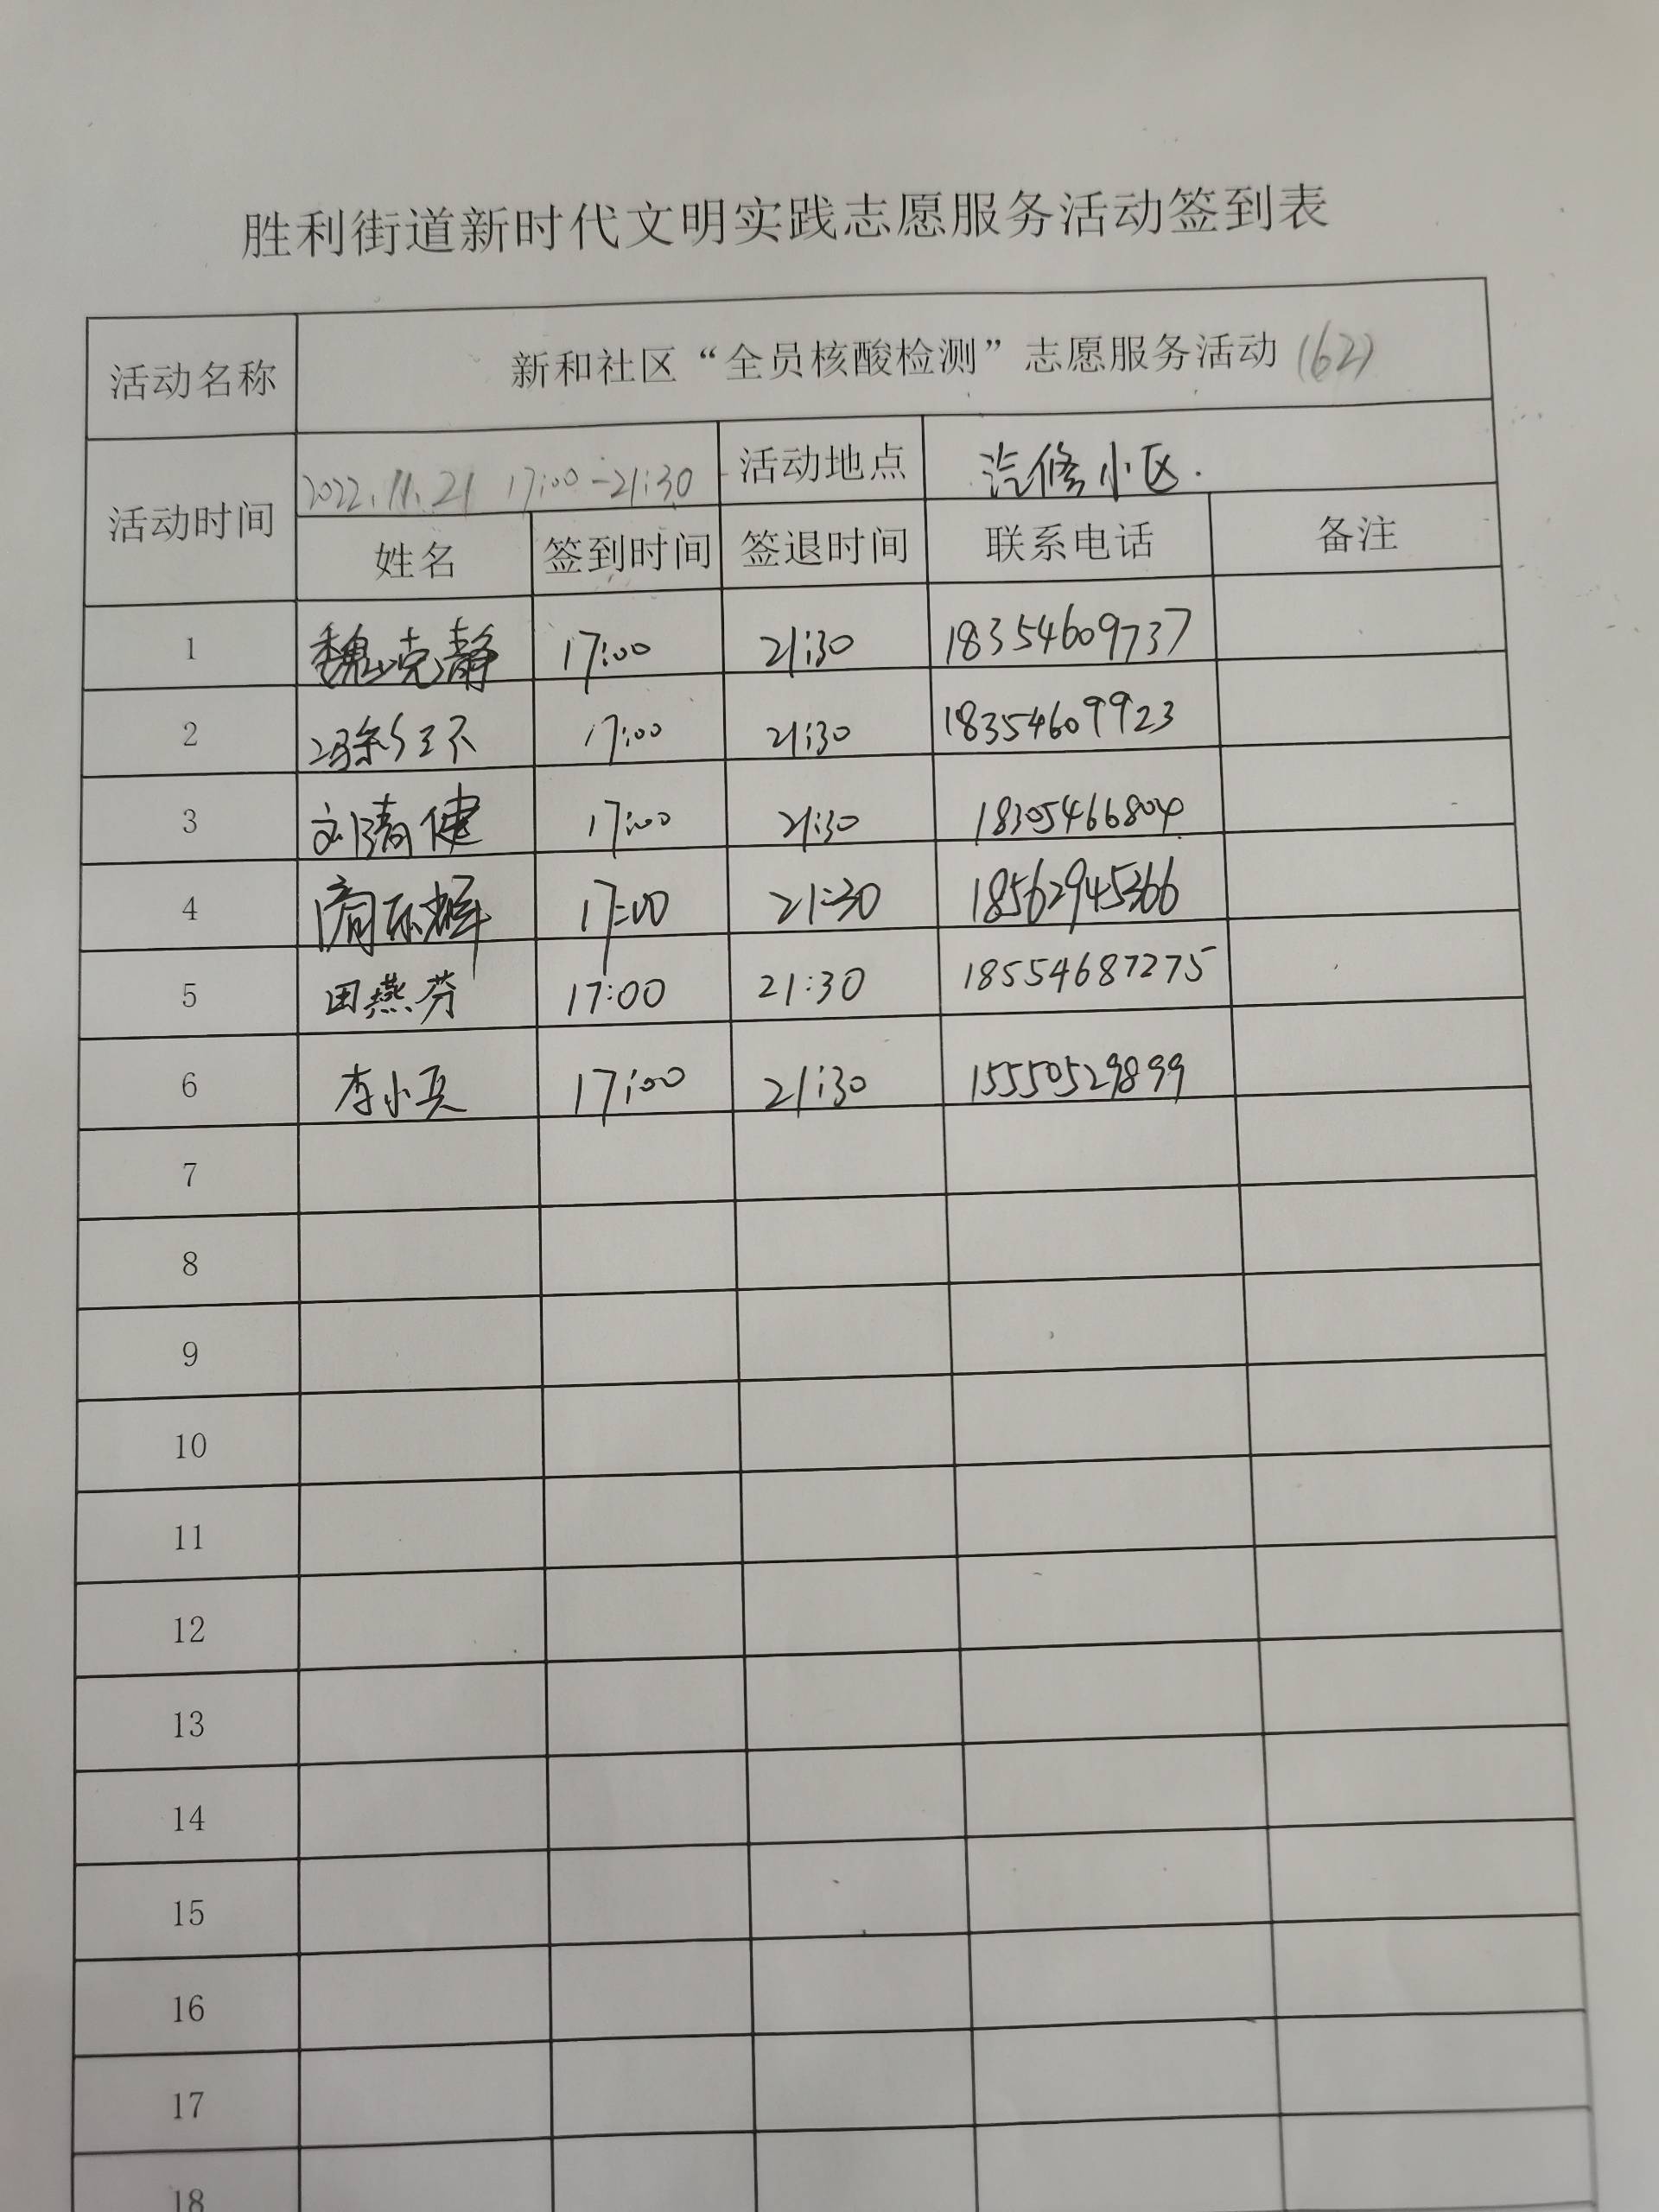 胜利街道新时代文明实践志愿服务活动签到表
活动名称 新和社区“全员核酸检测”志愿服务活动(62)
活动时间 2022.11.21 17:00-21:30 活动地点 汽修小区.
姓名 签到时间 签退时间 联系电话 备注
1 魏克静 17:00 21:30 18354609737
2 17:00 21:30 18354609923
3 刘清健 17:00 21:30 18305466804
4 17:00 21:30 18562945366
5 田燕芬 17:00 21:30 18554687275
6 李小兵 17:00 21:30 15550529899
7
8
9
10
11
12
13
14
15
16
17
18